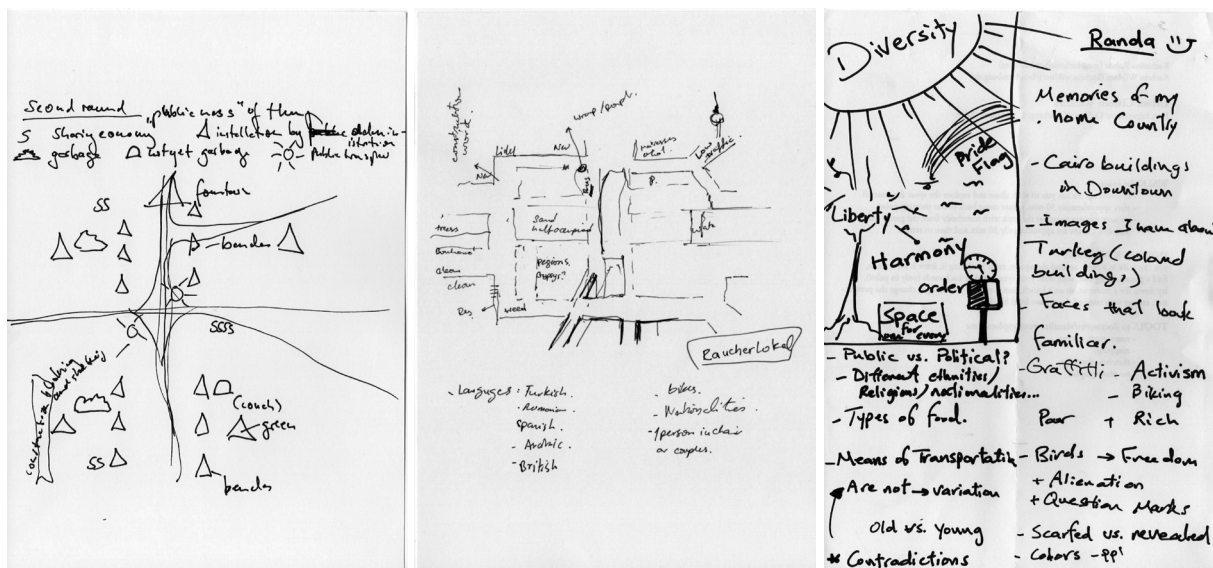 Second round "publicness" of things
S sharing economy △ installation by administration
garbage not yet garbage public transport
fountain
SS
benches
SSSS
construction
(couch)
green
SS
benches
construction work.
Lidl
New
New
Bus
P.
Low traffic
trees
sand
half occupied
pigeons
clean
clean
Res.
weed
Raucherlokal
- Languages: Turkish.
- Romanian
Spanish.
- Arabic.
- British
- bikes.
- Nationalities.
- 1 person in chair
or couples.
Diversity
Pride
Flag
Liberty
Harmony
order
Space
for every
- Public vs. Political?
- Different ethnities/
Religions/nationalities...
- Types of food.
- Means of Transportation
Are not → variation
Old vs. Young
* Contradictions
Randa
Memories of my
home Country
- Cairo buildings
in Downtown
- Images I have about
Turkey (colored
buildings)
- Faces that look
familiar.
- Graffitti - Activism
- Biking
Poor + Rich
- Birds → Freedom
+ Alienation
+ Question Marks
- Scarfed vs. revealed
- Colors